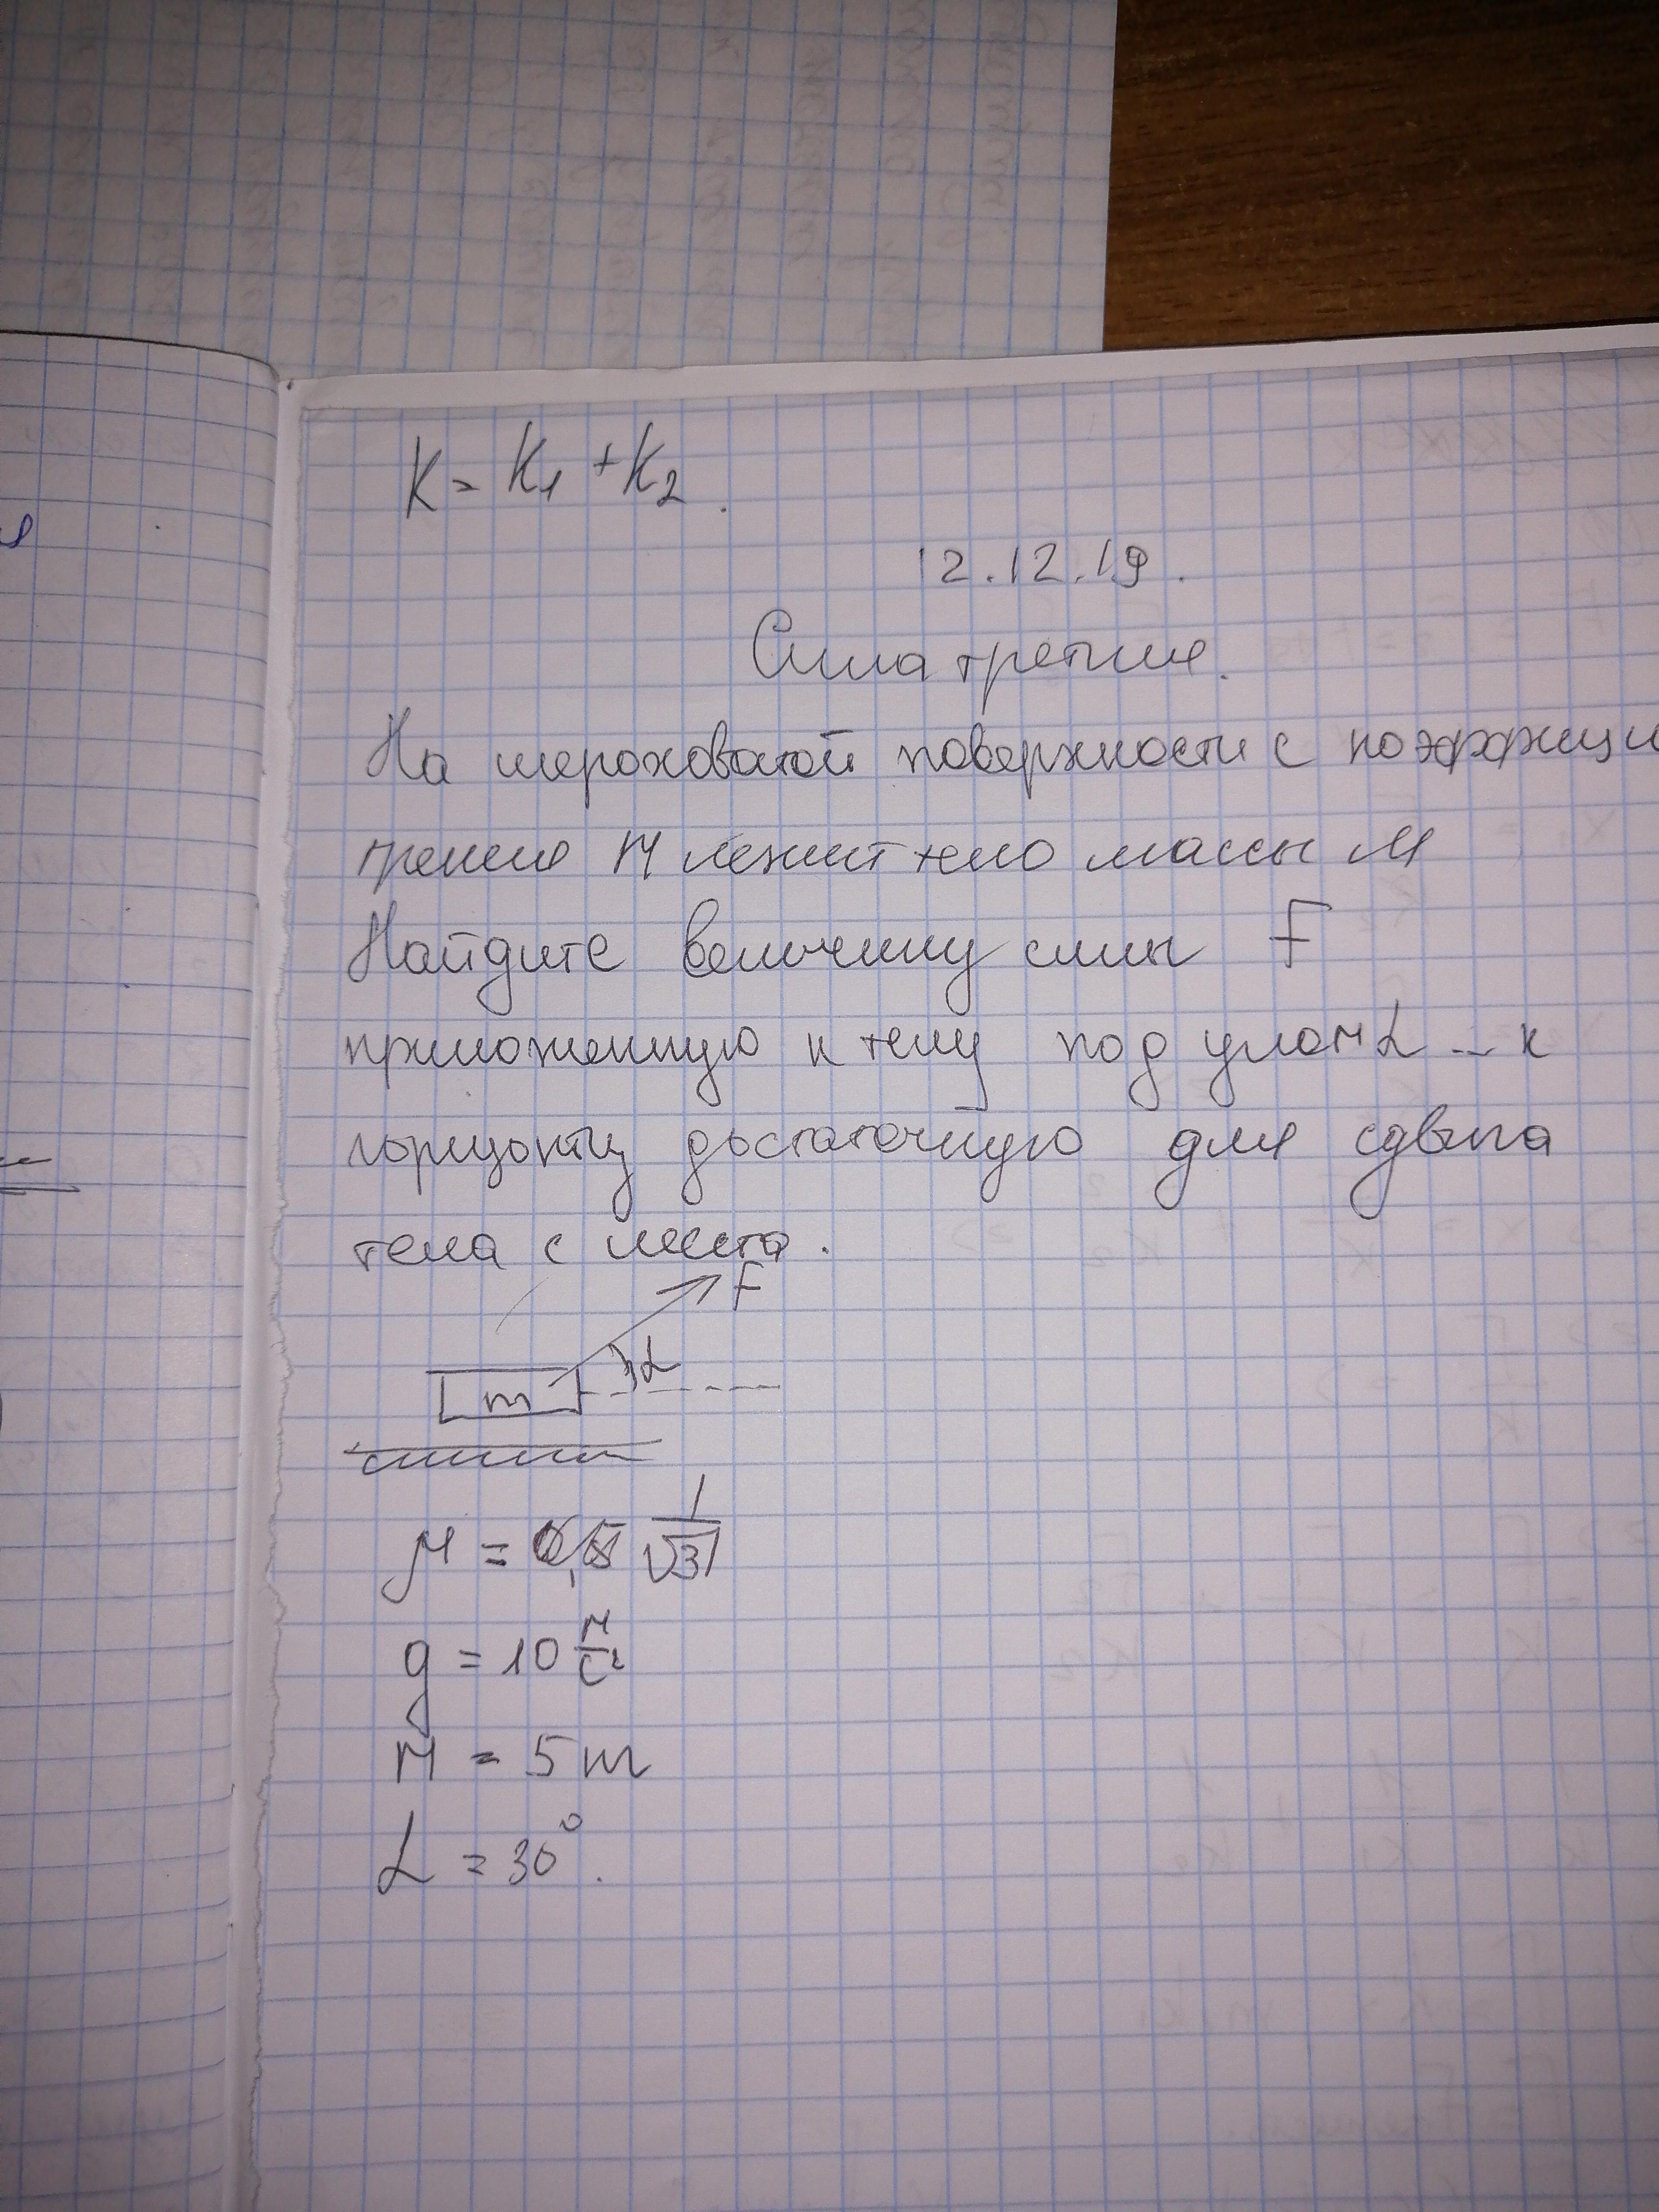 K = K₁ + K₂.
12.12.19.
Сила трения.
На шероховатой поверхности с коэффици
трения М лежит тело массы М
Найдите величину силы F
приложенную к телу под углом α к
горизонту достаточную для сдвига
тела с места.
F
α
m
μ = 1/√3
g = 10 м/с²
М = 5 m
α = 30°.